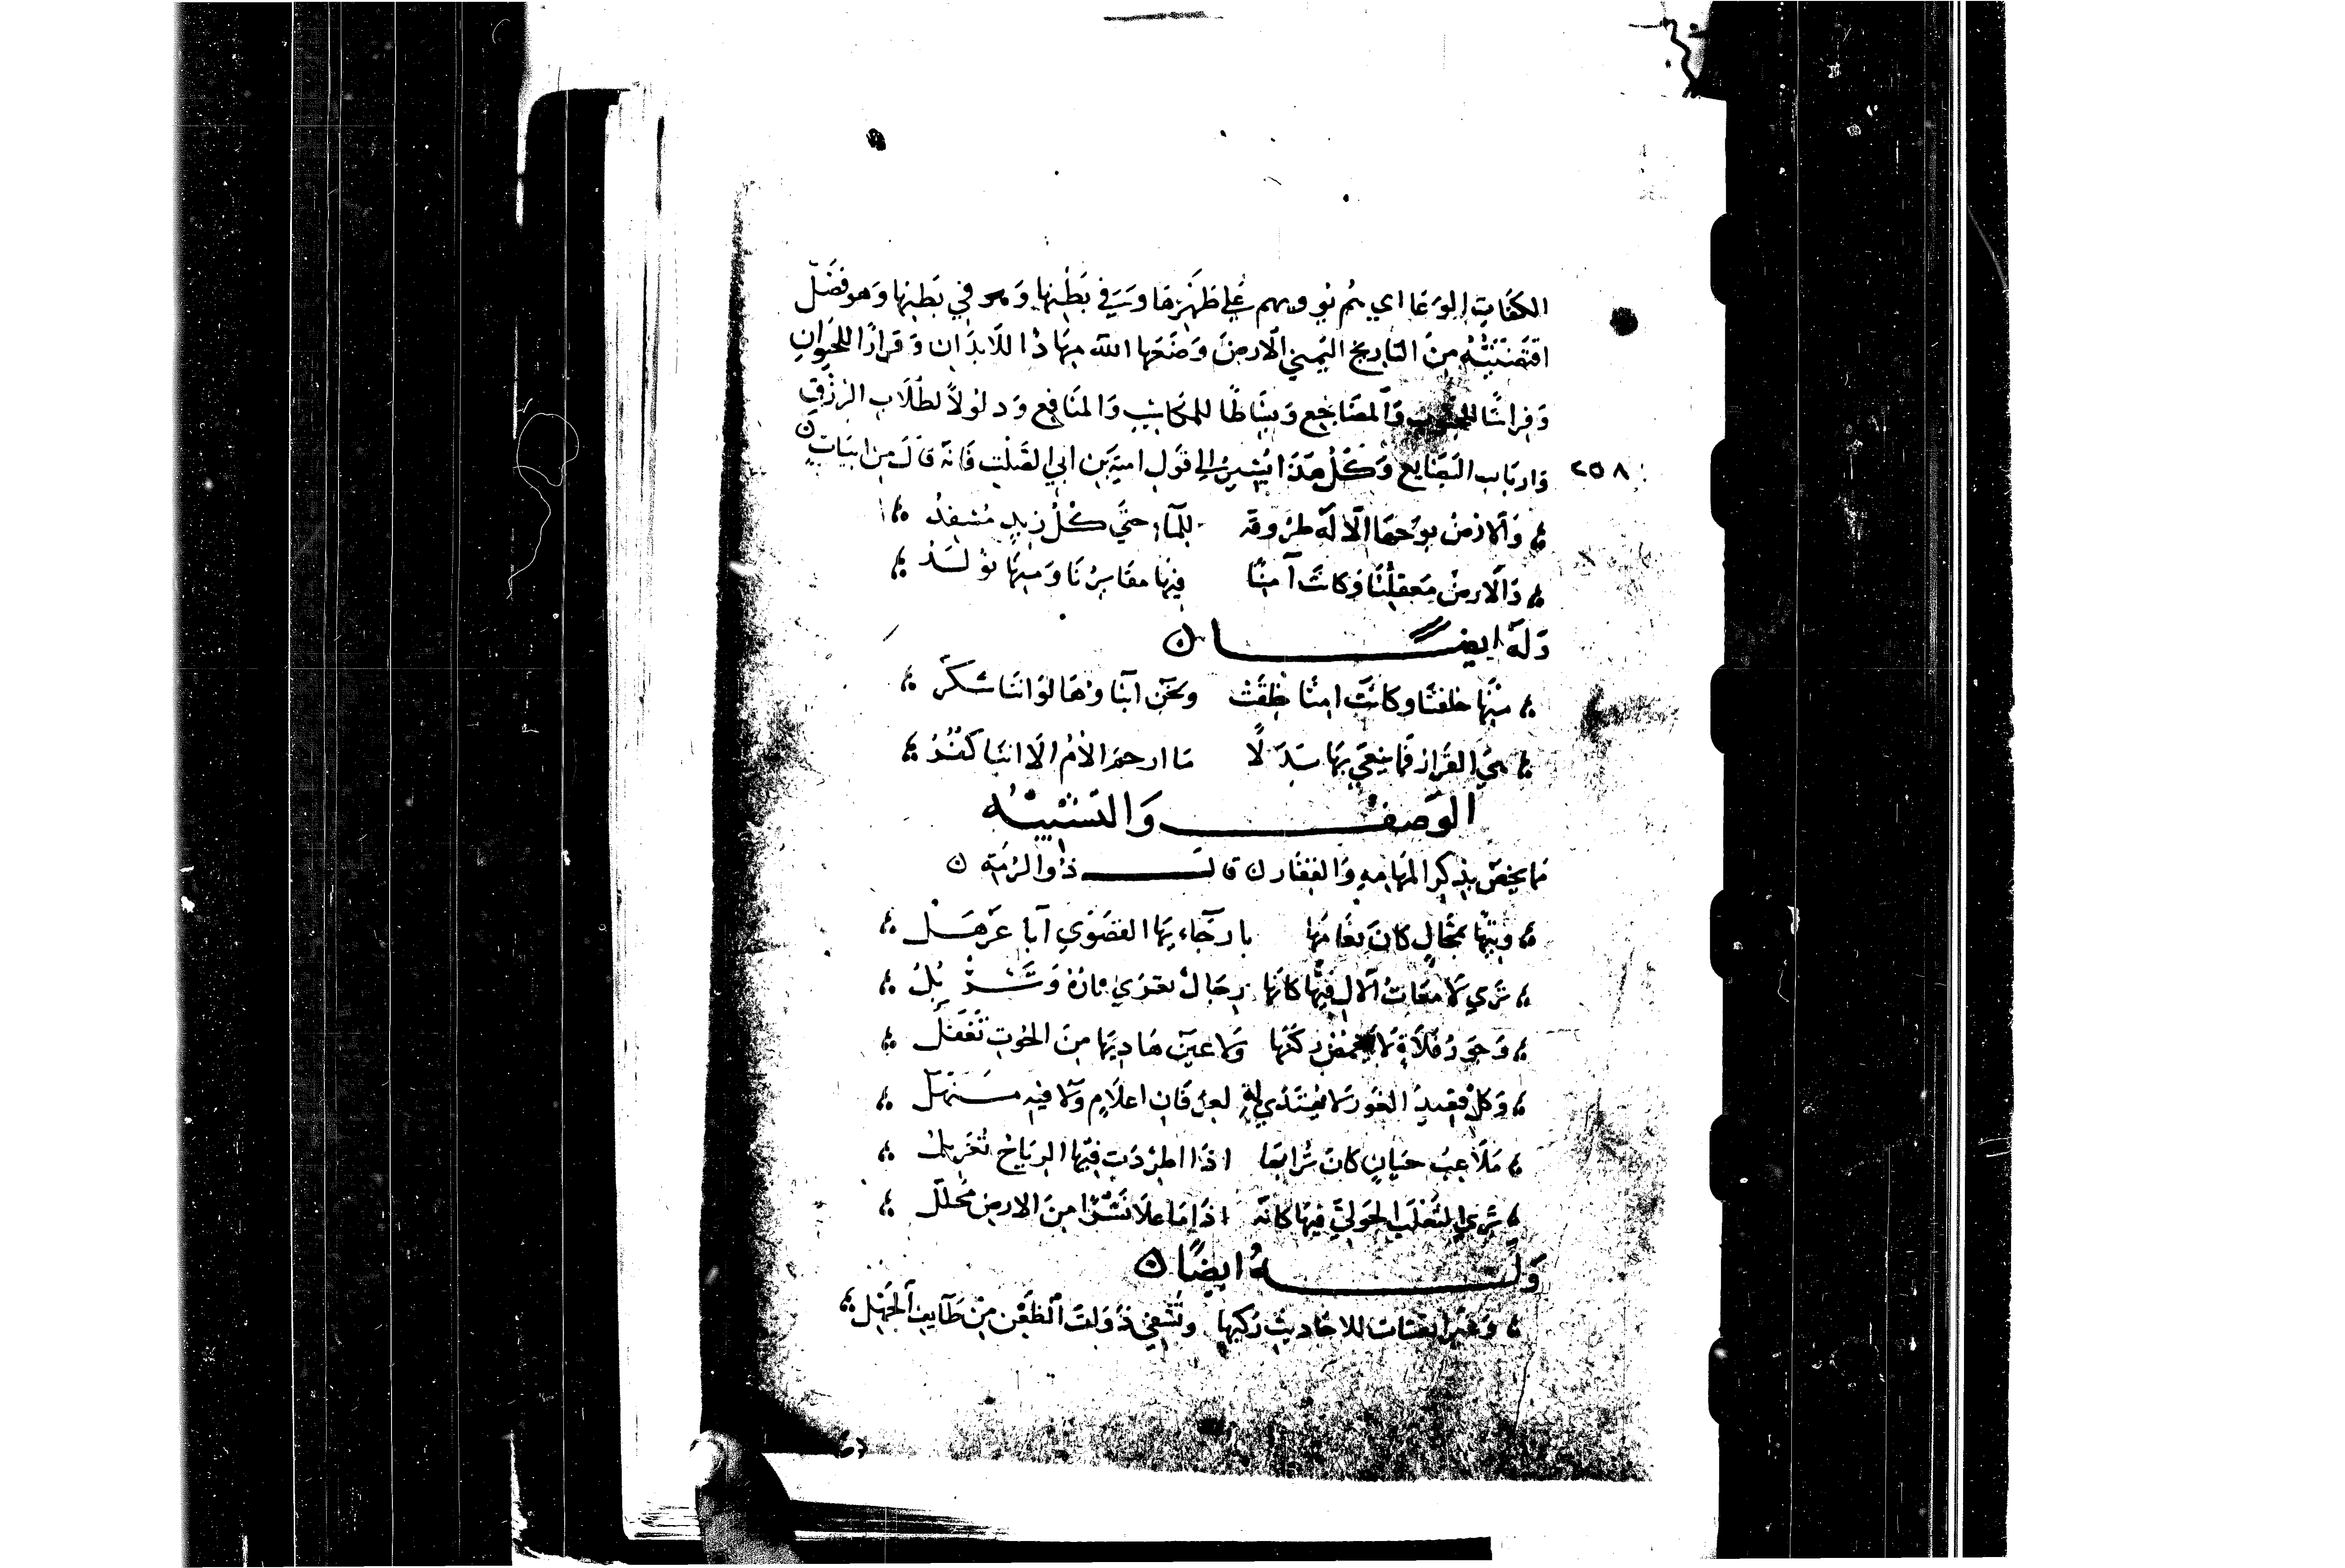 الكفات الوعا اي يضم بيوتهم علي ظهرها وفي بطنها وهو في بطنها وهو فضل
اقتضبته من التاريخ اليميني الارض وضعها الله مهادا للابدان وقرارا للحيوان
وفراشا للجنوب والمضاجع وبساطا للمكاسب والمنافع ودلولا لطلاب الرزق
وارباب البضايع وكل هذا يشير الي قول امية بن ابي الصلت فانه قال من ابيات
٢٥٨
والارض نوخها الاله طروقة للمآء حتي كل زند مسفد
والارض معقلنا وكانت امنا فيها مقابرنا ومنها نولد
وله ايضا
منها خلقنا وكانت امنا خلقت ونحن ابناوها لو اننا شكر
هي القرار فما نبغي بها بدلا ما ارحم الام الا اننا كفر
الوصف والتشبيه
مما يخص بذكر المهامه والقفار قال ذو الرمة
وتيها بارجاء يها القصوي ابا عرهل
تري لامعات الال فيها كانها رجال تعري تارة وتسربل
وجود فلاة لا يغمض ركبها ولا عين هاديها من الخوف تغفل
وكل بعيد الغور لا يهتدي له لعرفان اعلام ولا فيه منهل
ملاعب جنان كان ترابها اذا اطردت فيها الرياح تغربل
تري الثعلب الحولي فيها كانه اذا ما علا نشزا من الارض مجلل
وله ايضا
وغبرا يقتات الاحاديث ركبها وتشفي ذوات الظعن من طايف الجهل